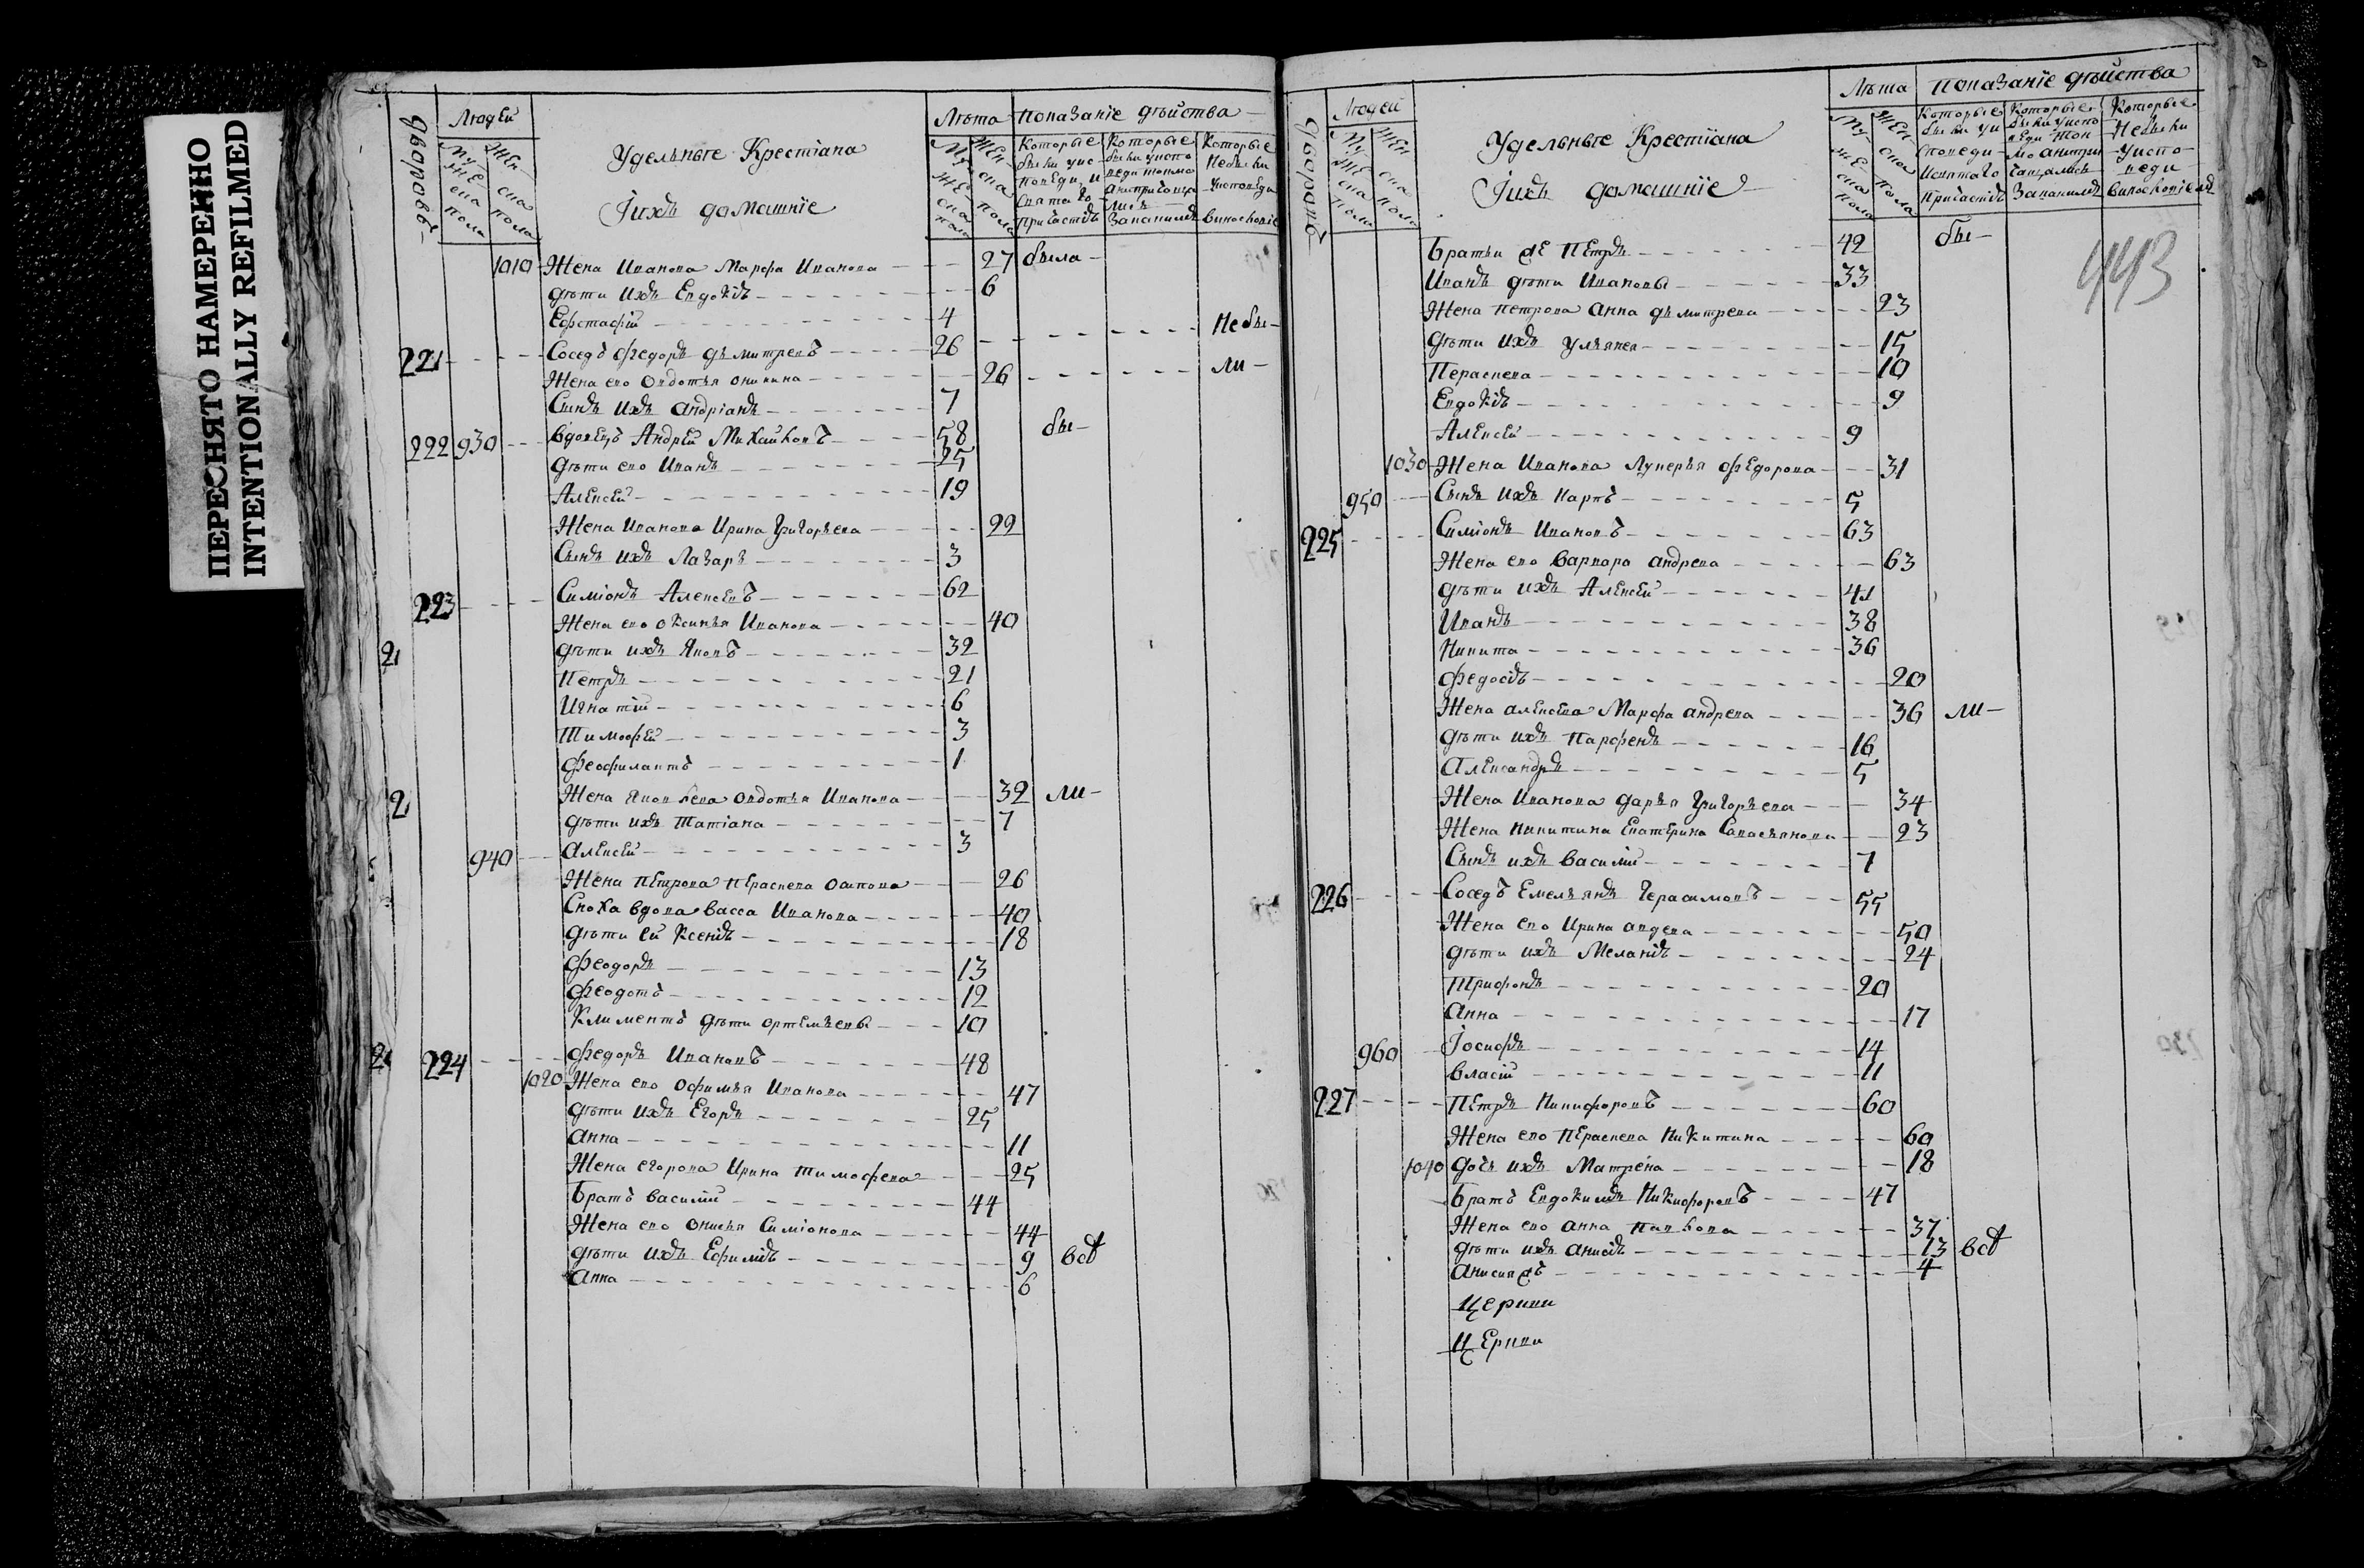 ПЕРЕСНЯТО НАМЕРЕННО
INTENTIONALLY REFILMED
дворовъ
Людей
Муже ска пола
Жен ска пола
Удельныѣ Крестіана
Іихъ домашніе
Лѣта
Муже ска пола
Жен ска пола
показаніе дѣйства
Которые были уис поведи, и святаго причастъ
Которые были уиспо веди токмо
Которые небыли уисповеди
1010 Жена Иванова Марфа Иванова 27 была
дѣти ихъ Евдокіѣ 6
Ефстафій 4
221 Соседъ Федоръ дѣмитревъ 26 небы-
Жена ево овдотья оникина 26 ли-
Сынъ ихъ андріанъ 7
222 930 вдовецъ Андрей Михайловъ 58 бы-
дѣти ево Иванъ 25
Алексей 19
Жена Иванова Ирина Григорьева 22
Сынъ ихъ Лазарь 3
223 Симіонъ Алексевъ 62
Жена ево оксинья Иванова 40
дѣти ихъ Яковъ 32
Петръ 21
Игнатій 6
Тимофей 3
Феофилактъ 1
Жена Яковлева овдотья Иванова 32 ли-
дѣти ихъ Татіана 7
940 Алексей 3
Жена Петрова Пераскева осипова 26
Сноха вдова васса Иванова 40
дѣти ей Ксеніѣ 18
Феодоръ 13
Феодотъ 12
Климентъ дѣти ортемьевы 10
224 Федоръ Ивановъ 48
1020 Жена ево офимья Иванова 47
дѣти ихъ Егоръ 25
анна 11
Жена егорова Ирина тимофева 25
Братъ василій 44
Жена ево онисья Симіонова 44
дѣти ихъ Ефиміѣ 9 всѣ
анна 6
дворовъ
Людей
Муже ска пола
Жен ска пола
Удельныѣ Крестіана
Іихъ домашніе
Лѣта
Муже ска пола
Жен ска пола
показаніе дѣйства
Которые были уи споведи исвятаго причастіѣ
Которые были уиспо веди ток мо
Которые небыли уиспо веди
443
Братьи де Петръ 42 бы-
Иванъ дѣти Ивановы 33
Жена петрова анна дѣмитрева 23
дѣти ихъ Ульянеа 15
Пераскева 10
Евдокіѣ 9
Алексей 9
1030 Жена Иванова Лукерья Федорова 31
950 Сынъ ихъ карпъ 5
225 Симіонъ Ивановъ 63
Жена ево варвара андрева 63
дѣти ихъ Алексей 41
Иванъ 38
Никита 36
Федосіѣ 20
Жена алексева Марфа андрева 36 ли-
дѣти ихъ Парфенъ 16
Александръ 5
Жена Иванова дарья Григорьева 34
Жена никитина Екатерина Савасьянова 23
Сынъ ихъ василій 7
226 Соседъ Емельянъ Герасимовъ 55
Жена ево Ирина авдева 50
дѣти ихъ Меланіѣ 24
Трифонъ 20
анна 17
960 Іосифъ 14
власій 11
227 Петръ Никифоровъ 60
Жена ево Пераскева Никитина 60
1040 дочь ихъ Матрена 18
Братъ Евдокимъ Никифоровъ 47
Жена ево анна павлова 37
дѣти ихъ анисіѣ 13 всѣ
Анисия дѣ 4
церкви
церкви